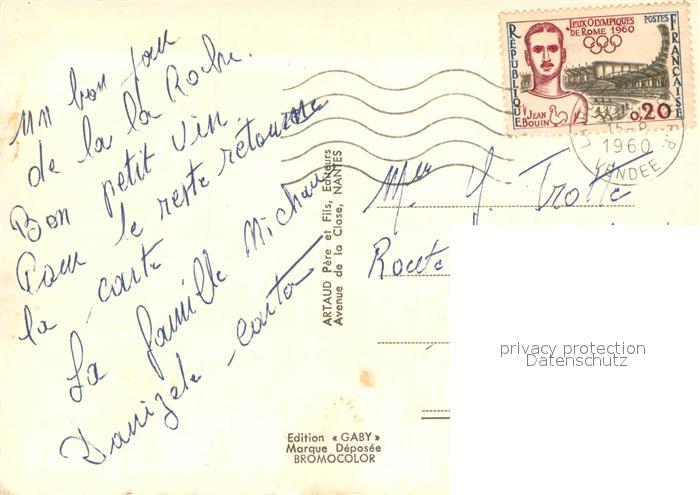 Un bon jour
de la la Roche.
Bon petit vin.
Pour le reste retourne
la carte
La famille Michau
Danizele
ARTAUD Père et Fils, Editeurs
Avenue de la Close, NANTES
Edition « GABY »
Marque Déposée
BROMOCOLOR
RÉPUBLIQUE
JEUX OLYMPIQUES
DE ROME 1960
POSTES
FRANÇAISE
JEAN
BOUIN
0,20
1960
VENDEE
Y. Trotte
Route
privacy protection
Datenschutz